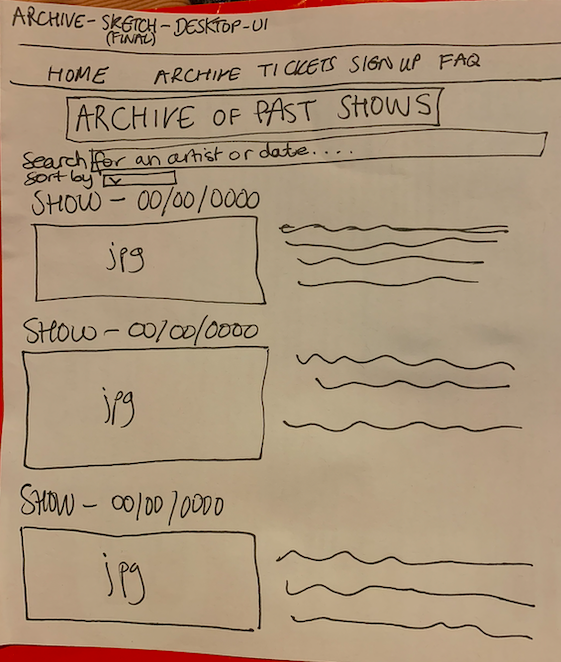 ARCHIVE-SKETCH-DESKTOP-UI
(FINAL)
HOME ARCHIVE TICKETS SIGN UP FAQ
ARCHIVE OF PAST SHOWS
Search for an artist or date....
Sort by
SHOW - 00/00/0000
jpg
SHOW - 00/00/0000
jpg
SHOW - 00/00/0000
jpg